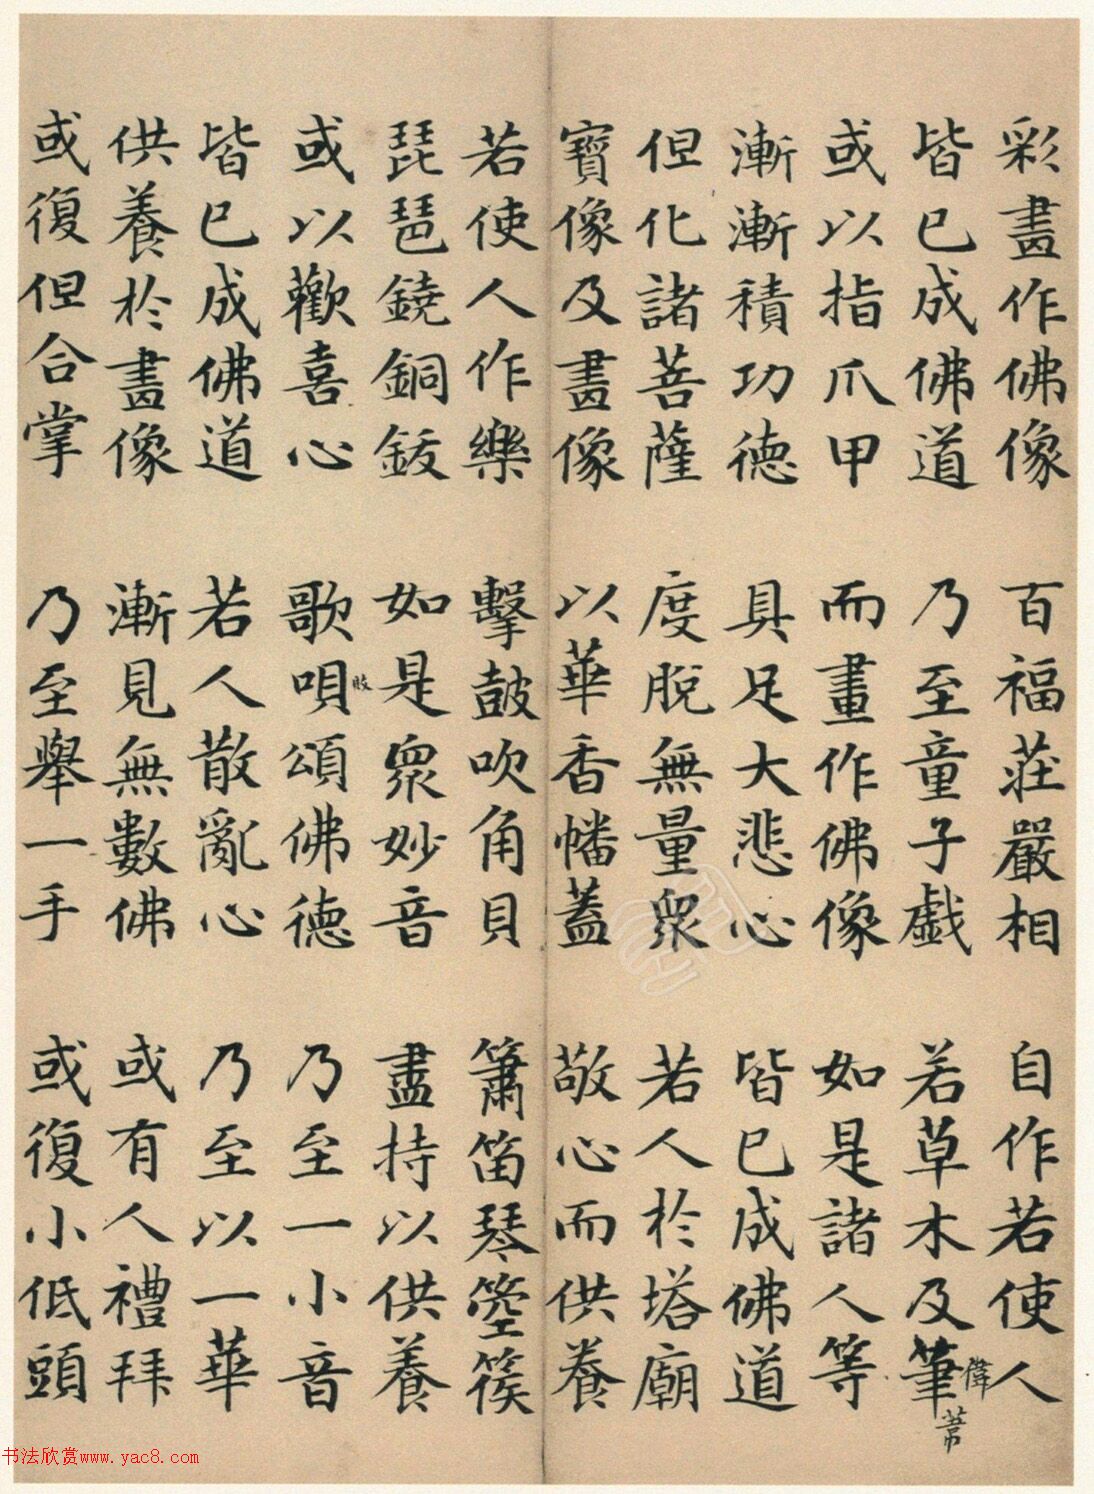 彩畫作佛像 百福莊嚴相 自作若使人
皆已成佛道 乃至童子戲 若草木及筆
或以指爪甲 而畫作佛像 如是諸人等
漸漸積功德 具足大悲心 皆已成佛道
但化諸菩薩 度脫無量眾 若人於塔廟
寶像及畫像 以華香幡蓋 敬心而供養
若使人作樂 擊鼓吹角貝 簫笛琴箜篌
琵琶鐃銅鈸 如是眾妙音 盡持以供養
或以歡喜心 歌唄頌佛德 乃至一小音
皆已成佛道 若人散亂心 乃至以一華
供養於畫像 漸見無數佛 或有人禮拜
或復但合掌 乃至舉一手 或復小低頭
书法欣赏www.yac8.com